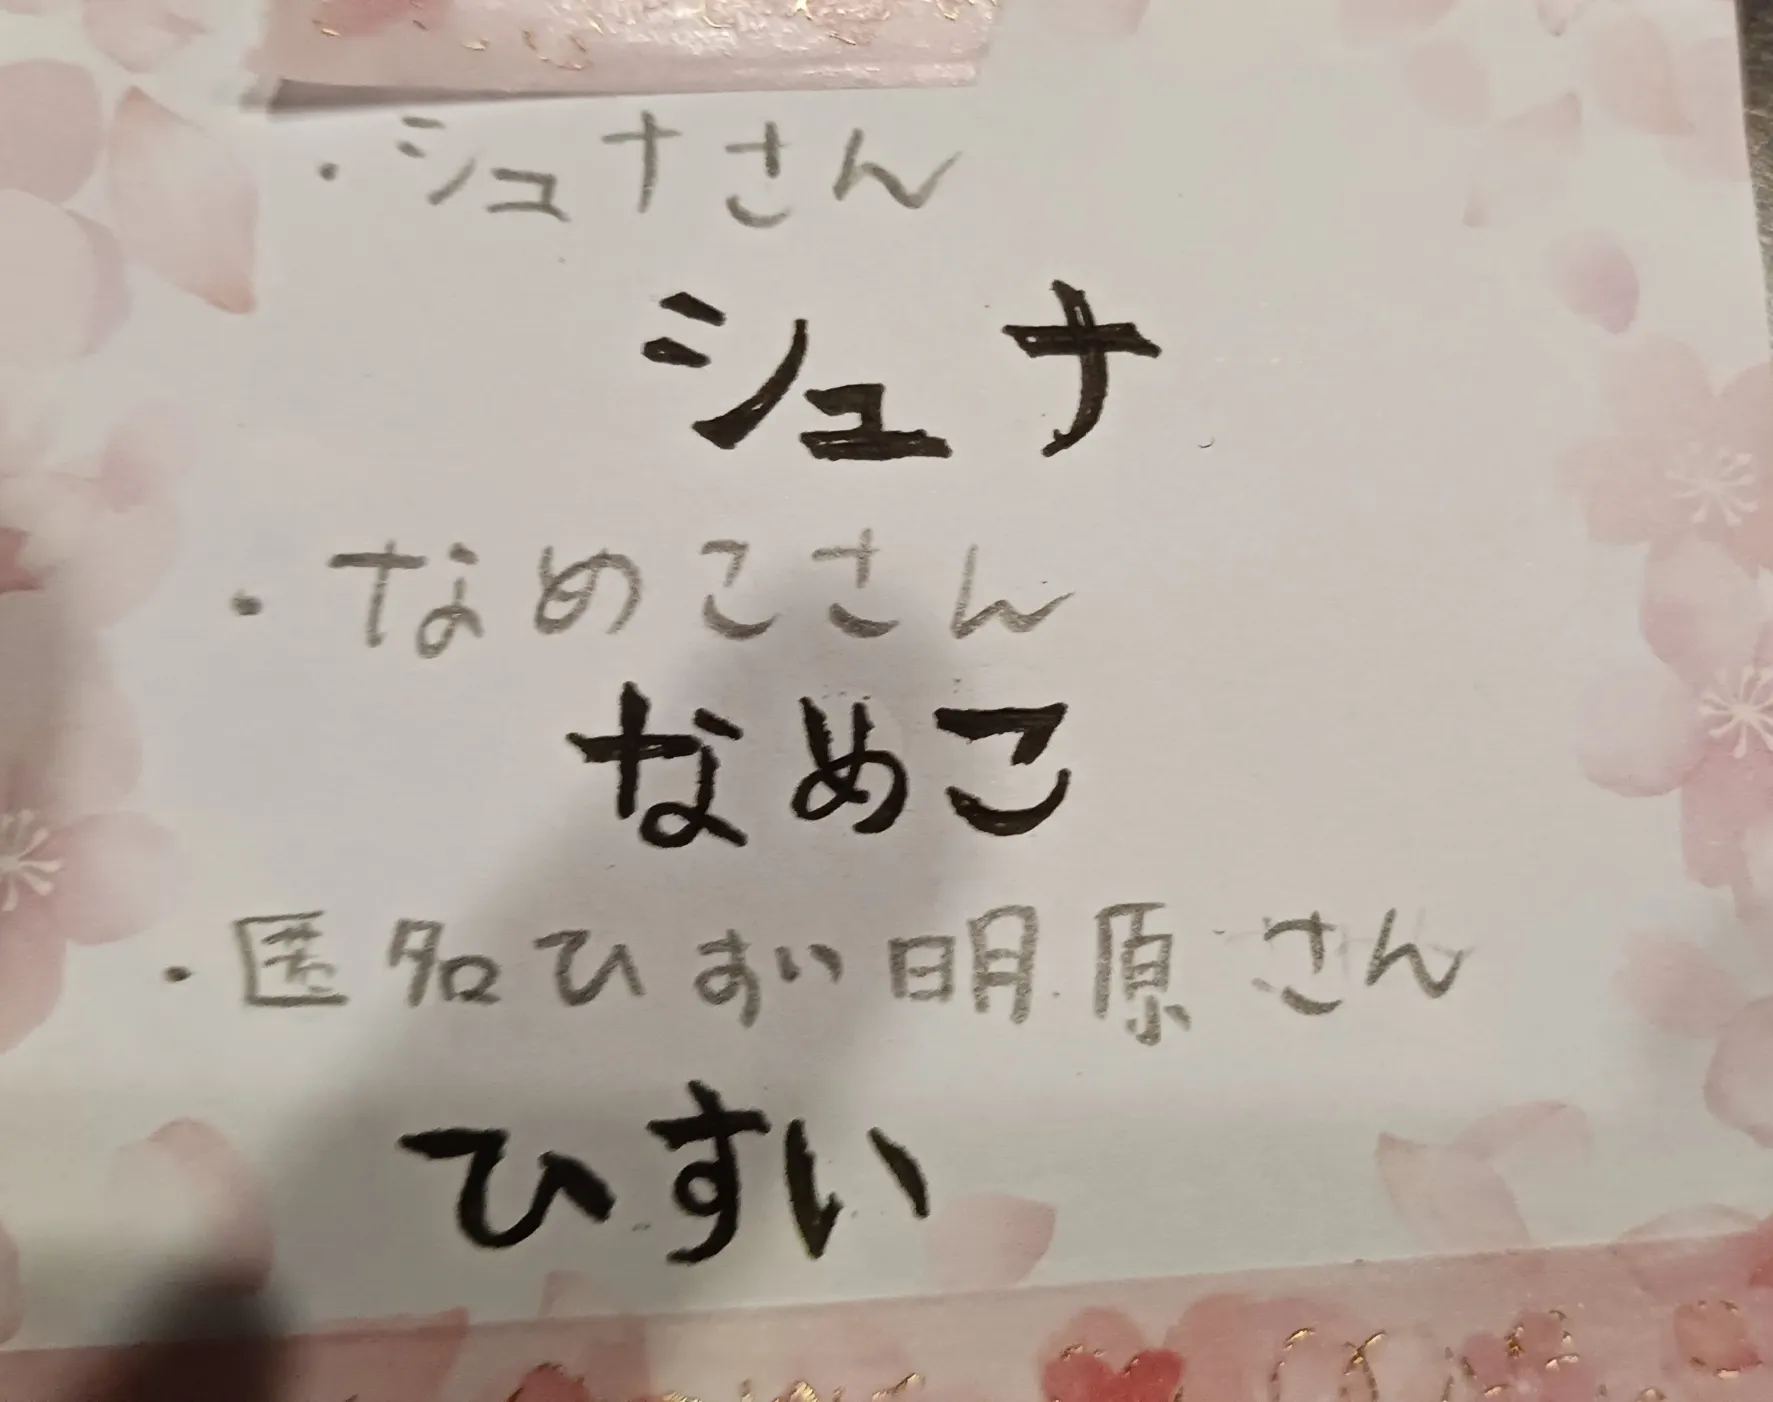 ・シュナさん
シュナ
・なめこさん
なめこ
・匿名ひすい明原さん
ひすい